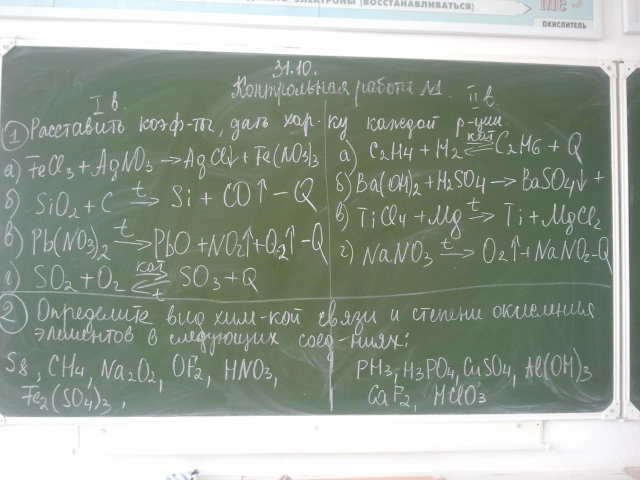 ЭЛЕКТРОНЫ (ВОССТАНАВЛИВАТЬСЯ)
ОКИСЛИТЕЛЬ
31.10.
Контрольная работа №1.
I в.
II в
① Расставить коэф-ты, дать хар-ку каждой р-ции
а) FeCl3 + AgNO3 → AgCl↓ + Fe(NO3)3
б) SiO2 + C t→ Si + CO↑ - Q
в) Pb(NO3)2 t→ PbO + NO2↑ + O2↑ - Q
г) SO2 + O2 кат⇄t SO3 + Q
а) C2H4 + H2 кат⇄ C2H6 + Q
б) Ba(OH)2 + H2SO4 → BaSO4↓ +
в) TiCl4 + Mg t→ Ti + MgCl2
г) NaNO3 t→ O2↑ + NaNO2 - Q
② Определите вид хим-кой связи и степени окисления
элементов в следующих соед-ниях:
S8, CH4, Na2O2, OF2, HNO3,
Fe2(SO4)3,
PH3, H3PO4, CuSO4, Al(OH)3
CaF2, HClO3